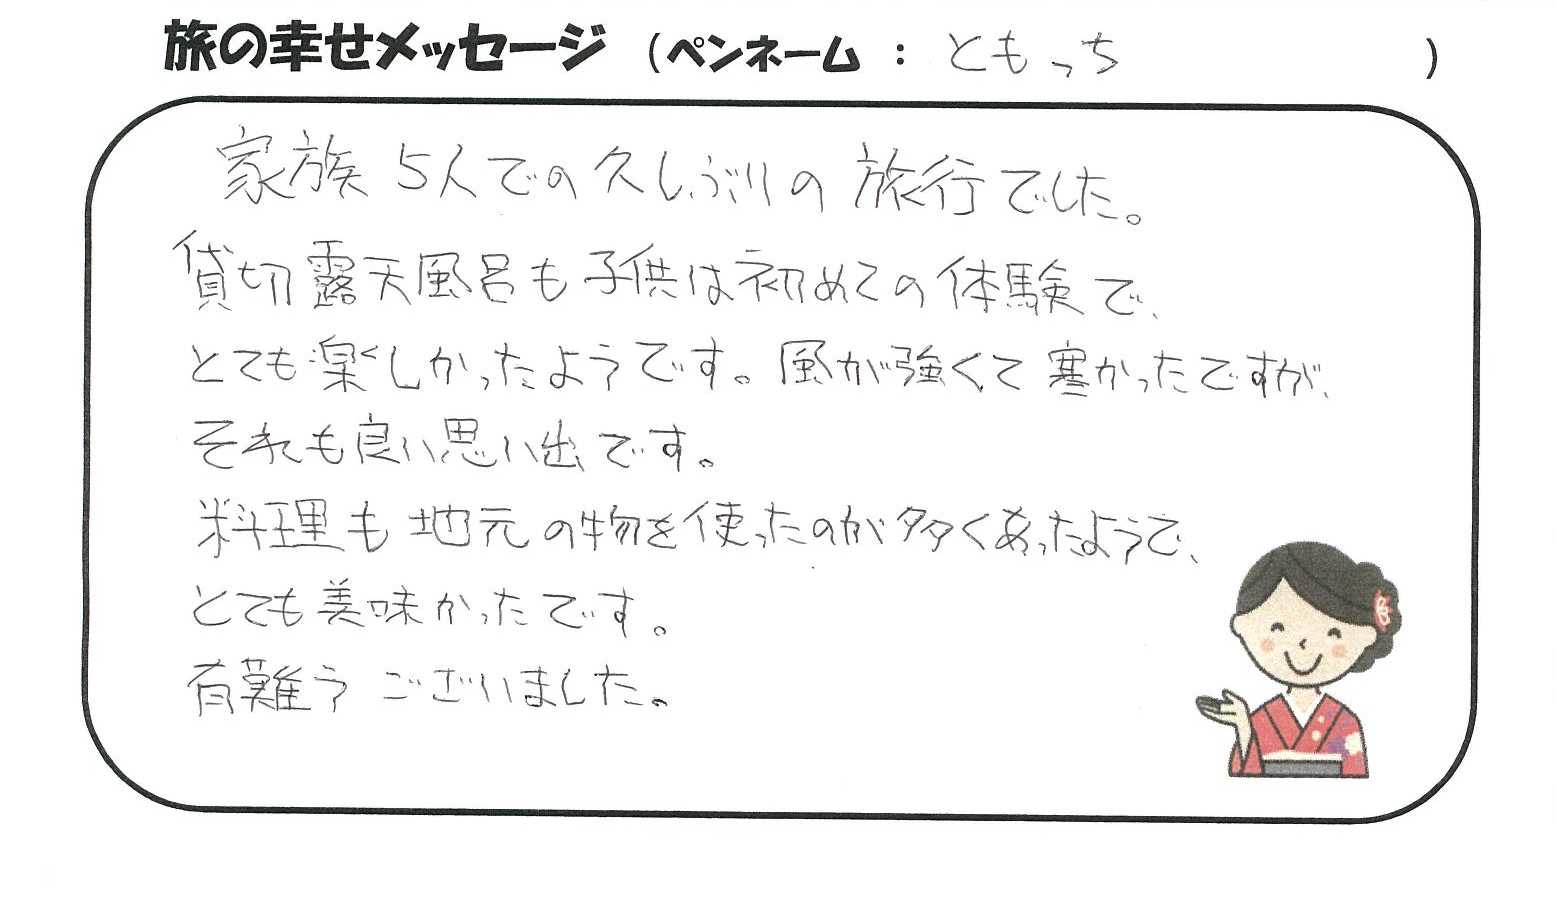 旅の幸せメッセージ (ペンネーム : ともっち )
家族5人での久しぶりの旅行でした。
貸切露天風呂も子供は初めての体験で、
とても楽しかったようです。風が強くて寒かったですが、
それも良い思い出です。
料理も地元の物を使ったのが多くあったようで、
とても美味かったです。
有難うございました。